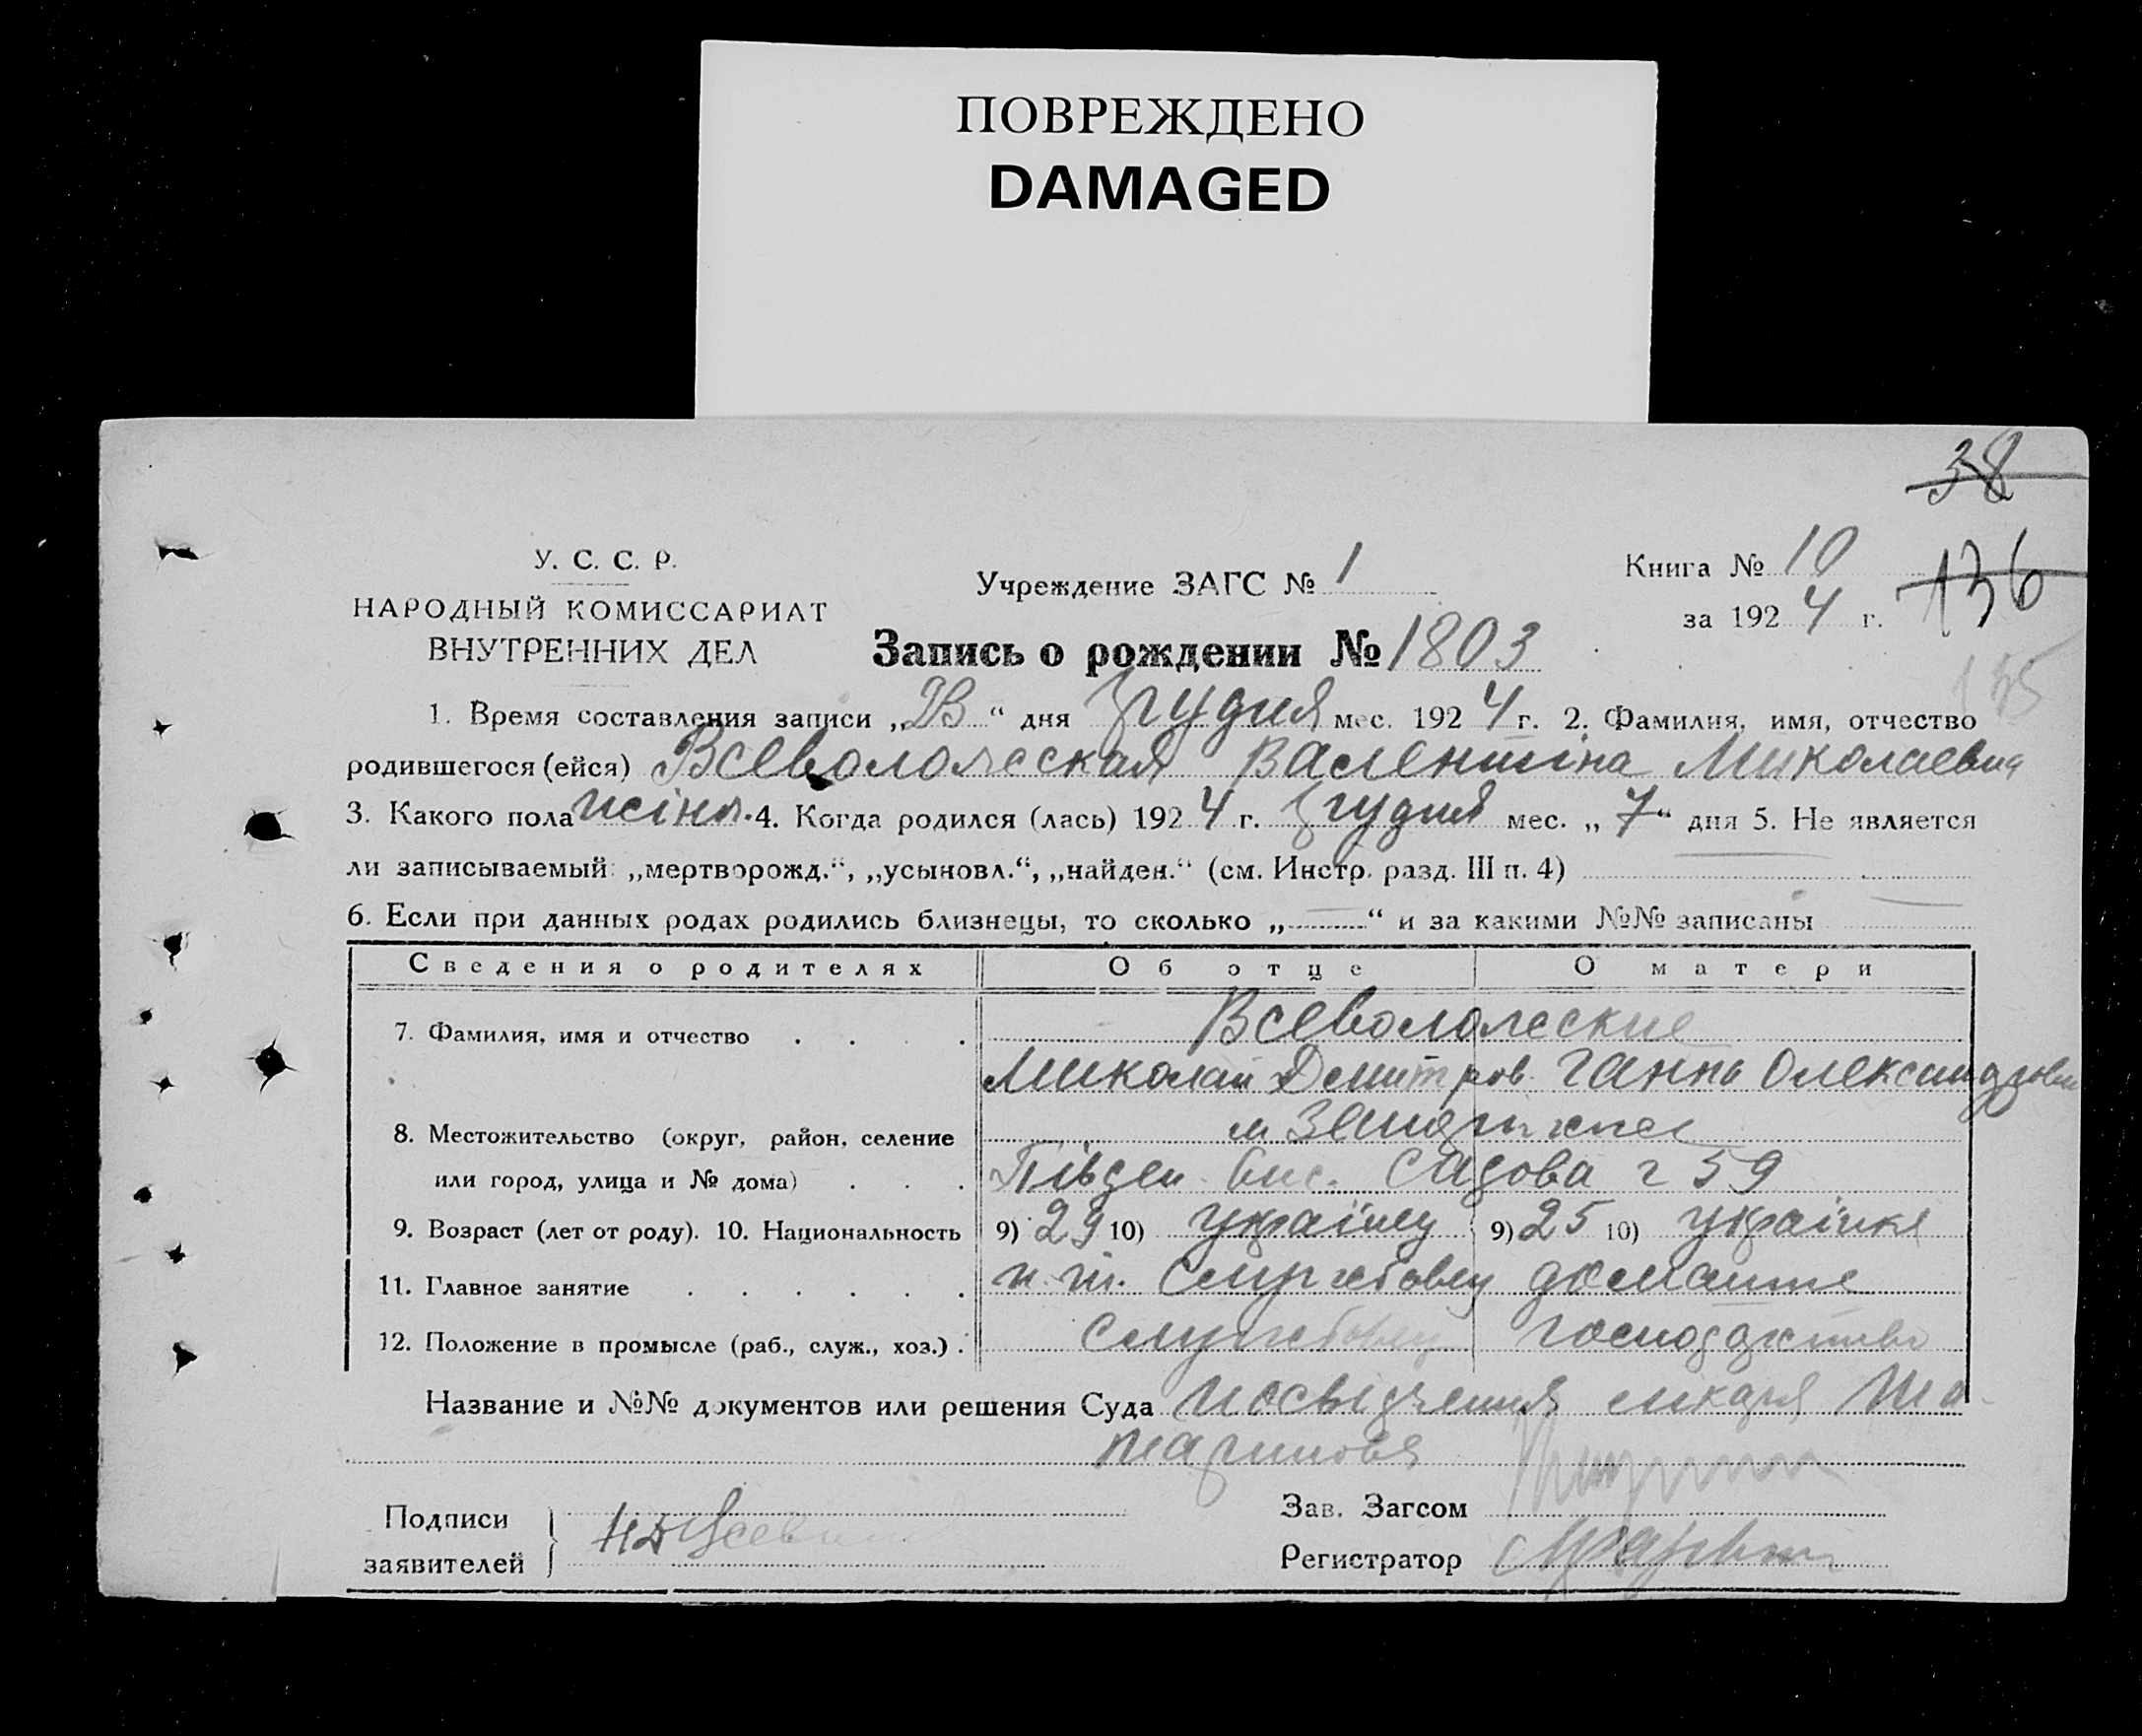 ПОВРЕЖДЕНО
DAMAGED
38
У. С. С. Р.
НАРОДНЫЙ КОМИССАРИАТ
ВНУТРЕННИХ ДЕЛ
Учреждение ЗАГС № 1
Книга № 10
за 1924 г.
136
135
Запись о рождении № 1803
1. Время составления записи „ “ дня грудня мес. 1924 г. 2. Фамилия, имя, отчество
родившегося (ейся) Всеволожская Валентіна Миколаевна
3. Какого пола жіноч. 4. Когда родился (лась) 1924 г. грудня мес. „7“ дня 5. Не является
ли записываемый: „мертворожд.“, „усыновл.“, „найден.“ (см. Инстр. разд. III п. 4)
6. Если при данных родах родились близнецы, то сколько „—“ и за какими №№ записаны
Сведения о родителях Об отце О матери
7. Фамилия, имя и отчество Всеволожские
Миколай Дмитров Ганна Олександровна
8. Местожительство (округ, район, селение м
или город, улица и № дома) Півден. Садова 59
9. Возраст (лет от роду). 10. Национальность 9) 29 10) українец 9) 25 10) українка
11. Главное занятие Службовец домашне
12. Положение в промысле (раб., служ., хоз.) Службовец господарство
Название и №№ документов или решения Суда посвідчення лікаря
Подписи
заявителей
Зав. Загсом
Регистратор